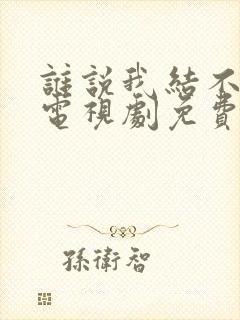 誰說我結不
電視劇免費
孫衛智